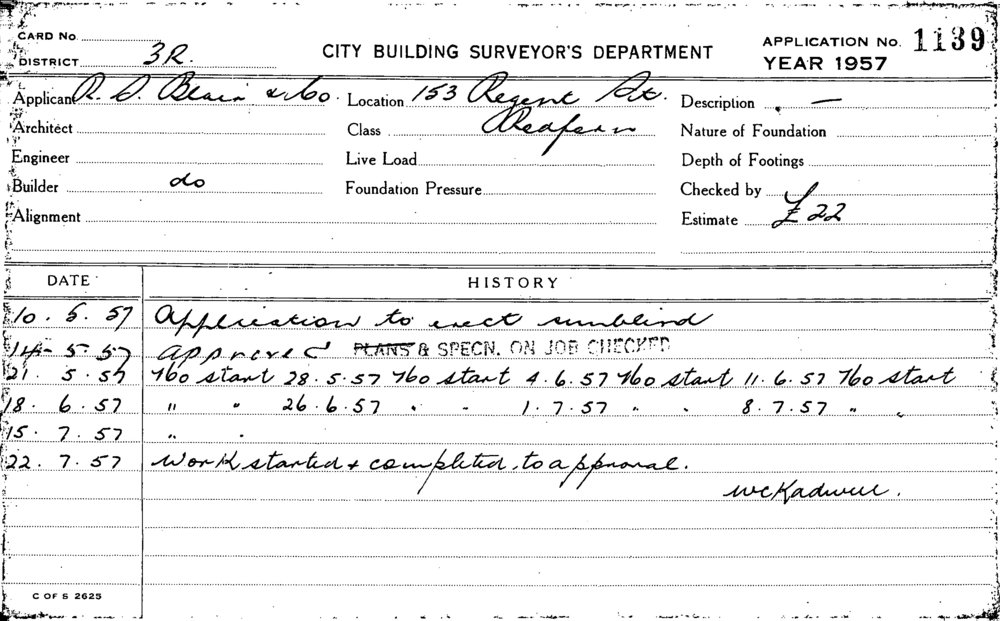 CARD No
DISTRICT 3R.
CITY BUILDING SURVEYOR'S DEPARTMENT
APPLICATION No. 1139
YEAR 1957
Applicant R. D. Blair & Co. Location 153 Regent St. Description —
Architect Class Redfern Nature of Foundation
Engineer Live Load Depth of Footings
Builder do Foundation Pressure Checked by
Alignment Estimate £22
DATE HISTORY
10. 5. 57 Application to erect sunblind
14- 5-57 approved PLANS & SPECN. ON JOB CHECKED
21. 5. 57 No start 28.5.57 No start 4.6.57 No start 11.6.57 No start
18. 6. 57 " " 26.6.57 " " 1.7.57 " " 8.7.57 " "
15. 7. 57 " "
22. 7. 57 Work started & completed to approval.
C OF S 2625